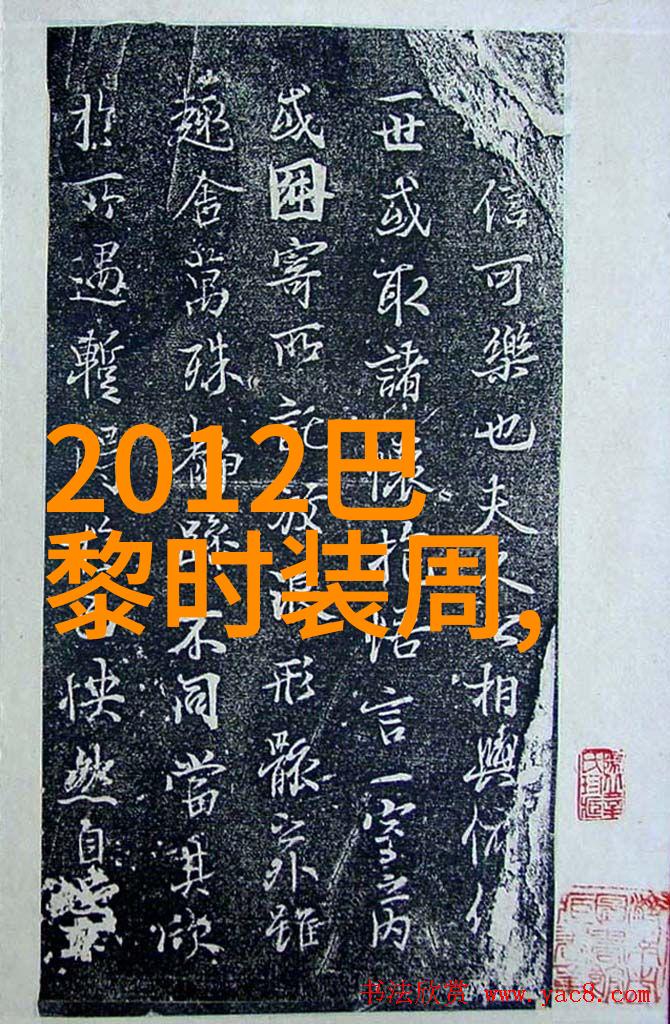 信可樂也夫人之相與俯仰
一世或取諸懷抱悟言一室之内
或因寄所託放浪形骸之外雖
趣舍萬殊靜躁不同當其欣
於所遇蹔得快然自
2012巴
黎时装周,
书法欣赏 www.yac8.com